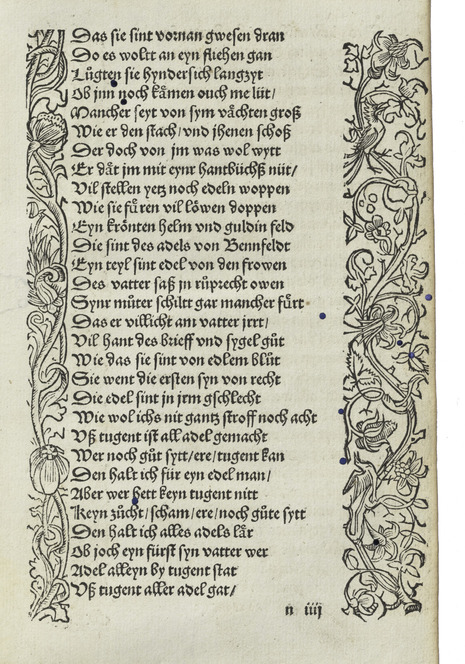 Das sie sint vornan gwesen dran
Do es woltt an eyn fliehen gan
Lůgten sie hyndersich langzyt
Ob jnn noch kämen ouch me lüt/
Mancher seyt von sym vächten groß
Wie er den stach/vnd jhenen schoß
Der doch von jm was wol wytt
Er dät jm mit eynr hantbüchß nüt/
Vil stellen yetz noch edeln woppen
Wie sie fůren vil löwen doppen
Eyn krönten helm vnd guldin feld
Die sint des adels von Bennfeldt
Eyn teyl sint edel von den frowen
Des vatter saß jn růprecht owen
Synr můter schiltt gar mancher fůrt
Das er villicht am vatter jrrt/
Vil hant des brieff vnd sygel gůt
Wie das sie sint von edlem blůt
Sie went die ersten syn von recht
Die edel sint jn jrm gschlecht
Wie wol ichs nit gantz stroff noch acht
Vß tugent ist all adel gemacht
Wer noch gůt sytt/ere/tugent kan
Den halt ich für eyn edel man/
Aber wer hett keyn tugent nitt
Keyn zůcht/scham/ere/noch gůte sytt
Den halt ich alles adels lär
Ob joch eyn fürst syn vatter wer
Adel alleyn by tugent stat
Vß tugent aller adel gat/
n iiij